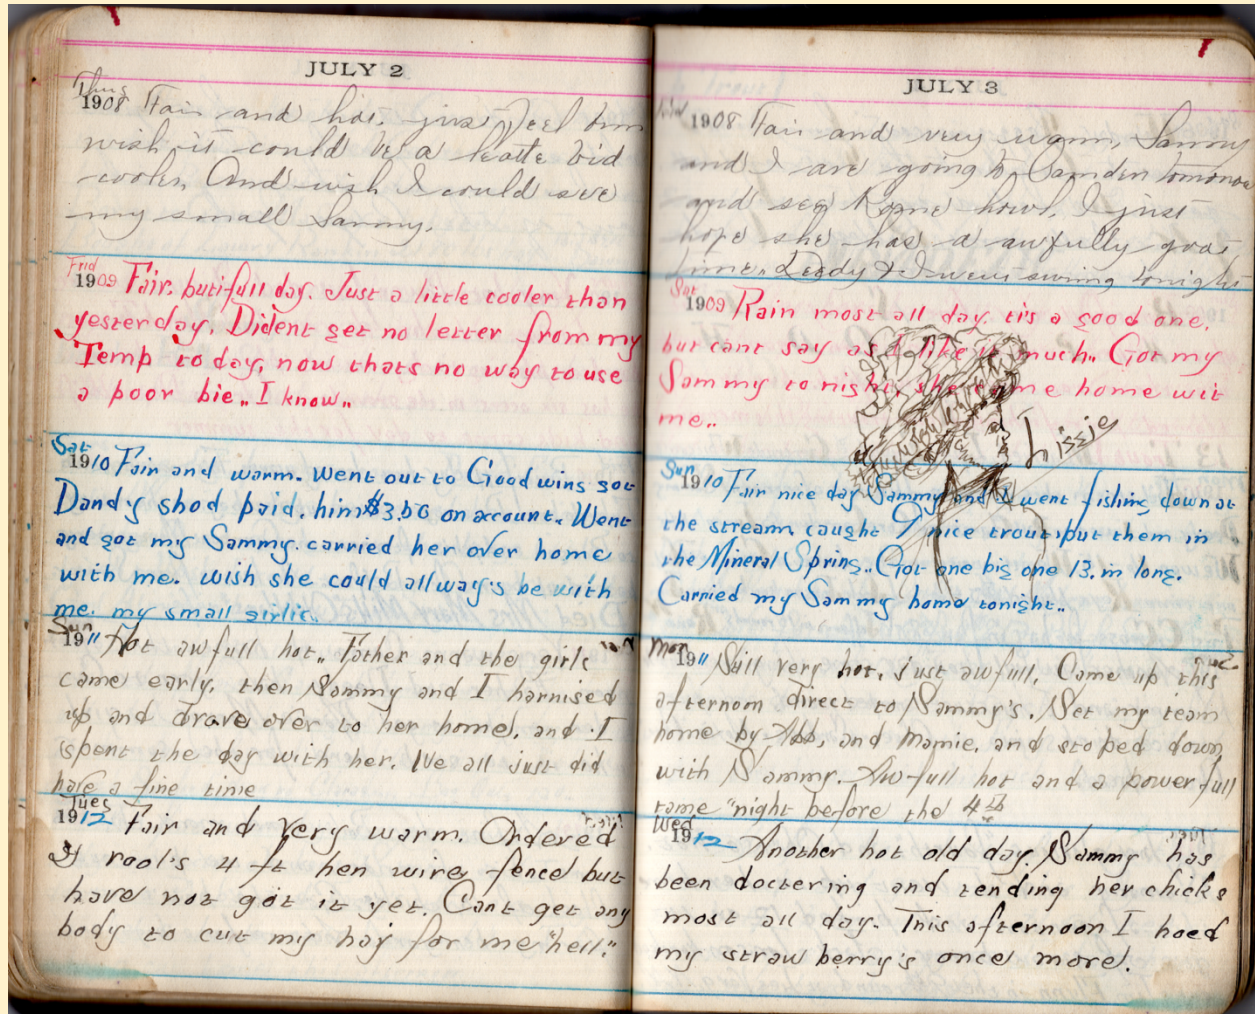 JULY 2
Thurs
1908 Fair and hot. just feel bum
wish it could be a leatle bid
cooler. And wish I could see
my small Sammy.
Frid
1909 Fair. butifull day. Just a little cooler than
yesterday. Dident get no letter from my
Temp to day, now thats no way to use
a poor bie.. I know..
Sat
1910 Fair and warm. Went out to Goodwins got
Dandy shod, paid. him $3.50 on account.. Went
and got my Sammy. carried her over home
with me. wish she could allway's be with
me. my small girlie.
Sun
1911 Hot awfull hot.. Father and the girls
came early, then Sammy and I harnised
up and drove over to her home, and I
spent the day with her. We all just did
have a fine time
Tues
1912 Fair and very warm. Ordered
rool's 4 ft hen wire fence but
have not got it yet. Cant get any
body to cut my hay for me "hell."
JULY 3
1908 Fair and very warm, Sammy
and I are going to Camden tomorrow
and see Rome howl. I just
hope she has a awfully good
time.. Leedy & I went swing tonight
Sat
1909 Rain most all day. tis a good one,
but cant say as I like it much.. Got my
Sammy to night, she came home wit
me..
Lissie
Sun
1910 Fair nice day Sammy and I went fishing down at
the stream, caught 9 nice trout, put them in
the Mineral Spring.. Got one big one 13. in long.
Carried my Sammy home tonight..
Mon
1911 Still very hot, just awfull. Came up this
afternoon direct to Sammy's. Set my team
home by Abb, and Mamie, and stoped down
with Sammy. Awfull hot and a powerfull
tame "night before the 4th
Wed
1912 Another hot old day. Sammy has
been doctering and tending her chicks
most all day. This afternoon I hoed
my straw berry's once more.